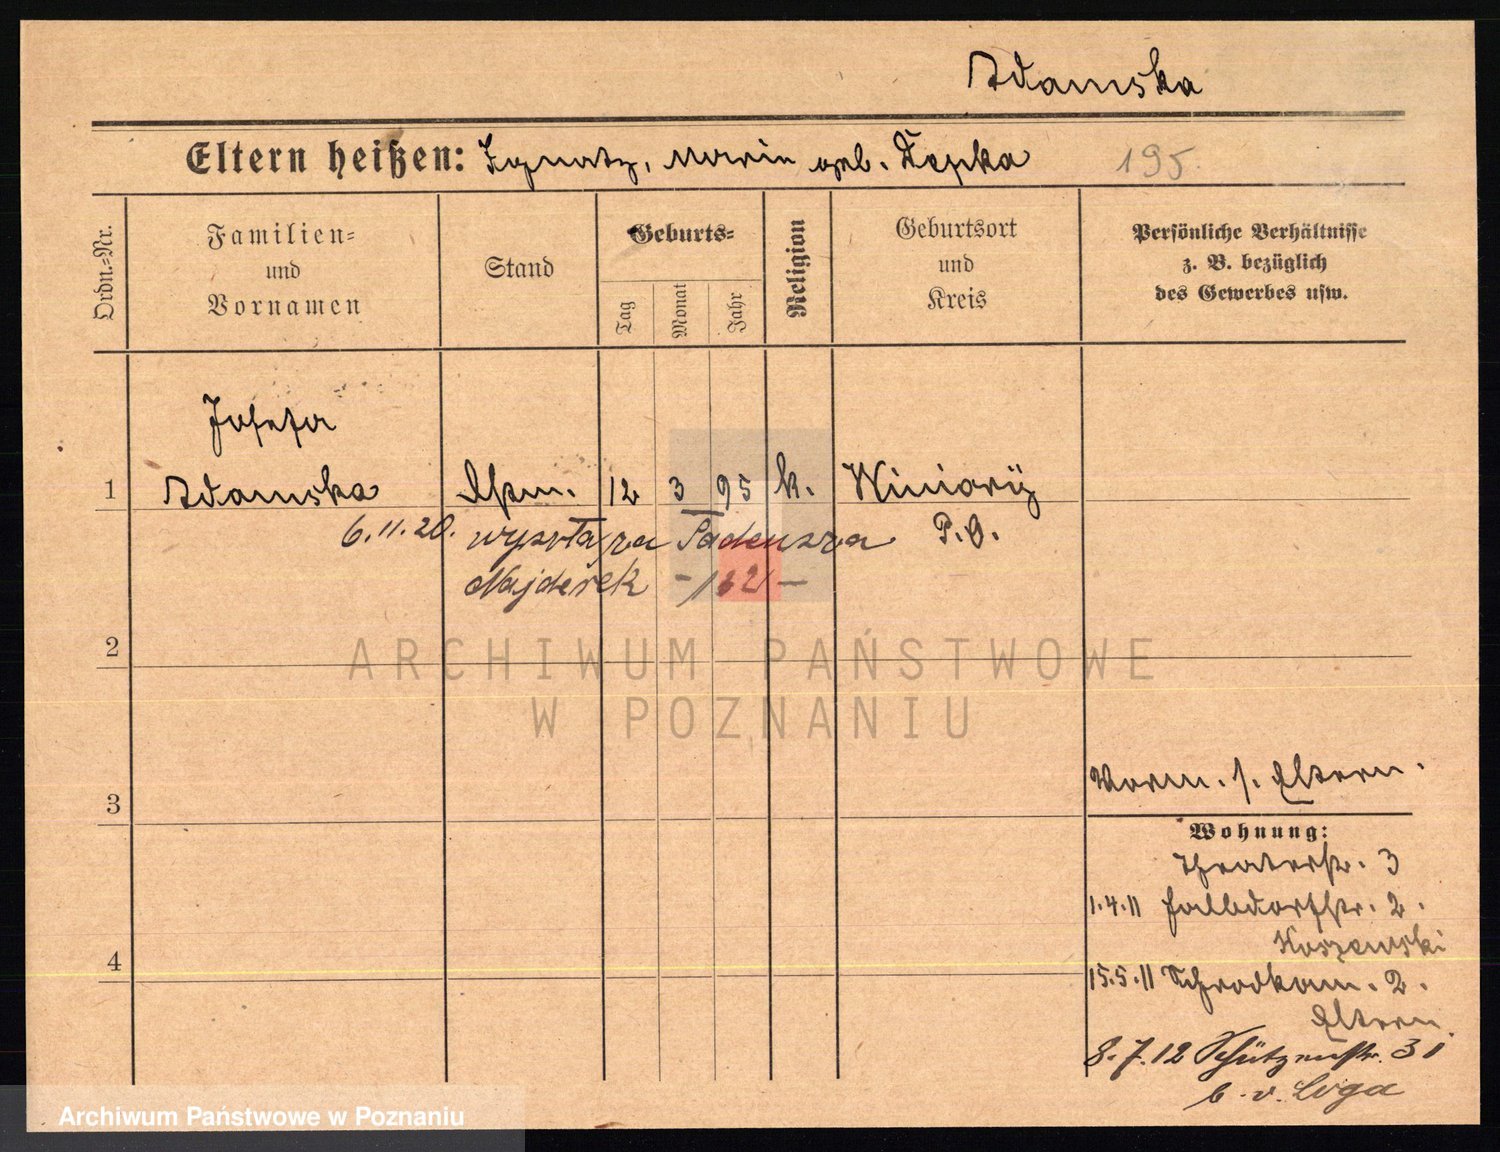 Adamska
Eltern heißen: Ignatz, Maria geb. Kepka
195.
Ordn.=Nr.
Familien= und Vornamen
Stand
Geburts=
Tag
Monat
Jahr
Religion
Geburtsort und Kreis
Persönliche Verhältnisse
z. B. bezüglich
des Gewerbes usw.
Josefa
1 Adamska 12 3 95 k. Winiary
6.11.20. wyszła za Tadeusza P. O.
Najderek
2
ARCHIWUM PAŃSTWOWE
W POZNANIU
Vorm. s. Eltern.
3
Wohnung:
Theaterstr. 3
1.4.11 Halbdorfstr. 2.
4
15.5.11 Schrodkam. 2.
Eltern.
8.7.12 Schützenstr. 31
b. v. Loga
Archiwum Państwowe w Poznaniu